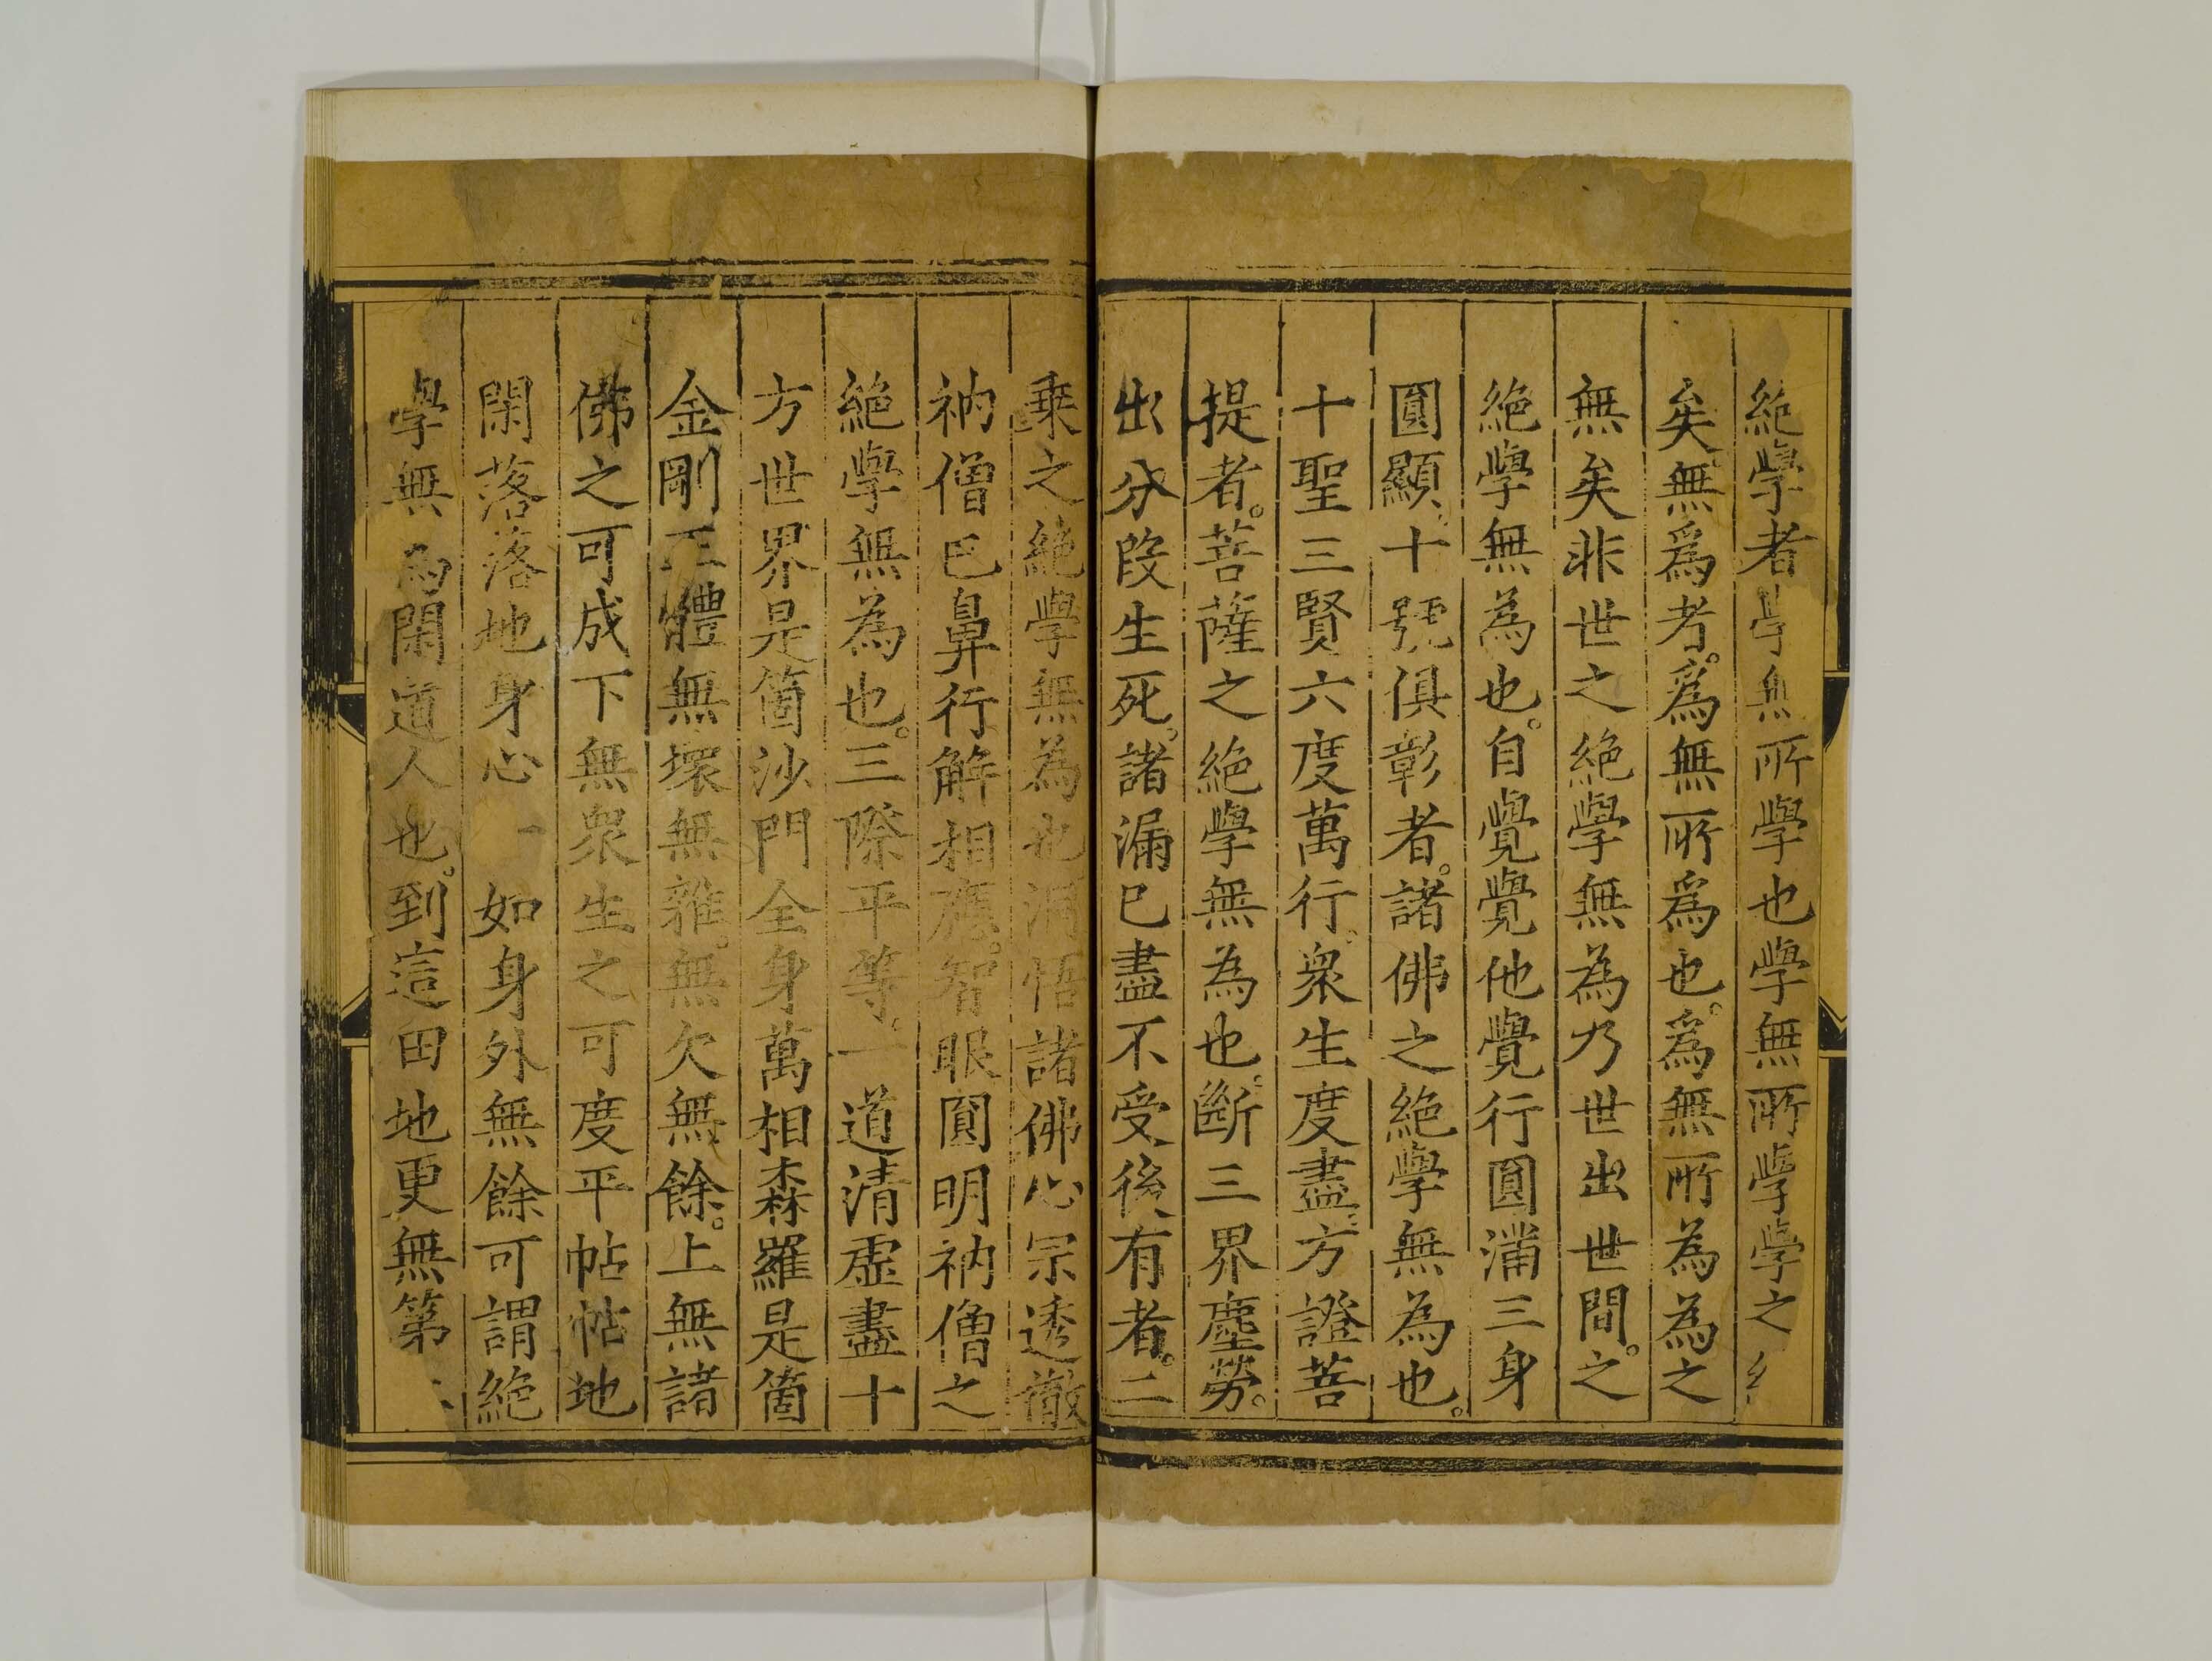 絶學者學無所學也學無所學學之
矣無爲者。爲無所爲也。爲無所為為之
無矣非世之絶學無為乃世出世間。之
絶學無為也。自覺覺他覺行圓滿三身
圓顯十號俱彰者。諸佛之絶學無為也。
十聖三賢六度萬行。衆生度盡方證菩
提者。菩薩之絶學無為也。斷三界塵勞。
出分段生死。諸漏已盡不受後有者。二
乗之絶學無為也洞悟諸佛心宗透徹
衲僧巴鼻行解相應。智眼圓明衲僧之
絶學無為也。三際平等。一道清虛盡十
方世界是箇沙門全身萬相森羅是箇
金剛正體無壞無雜。無欠無餘。上無諸
佛之可成下無衆生之可度平帖帖地
閑落落地身心一如身外無餘可謂絶
學無為閑道人也。到這田地更無第